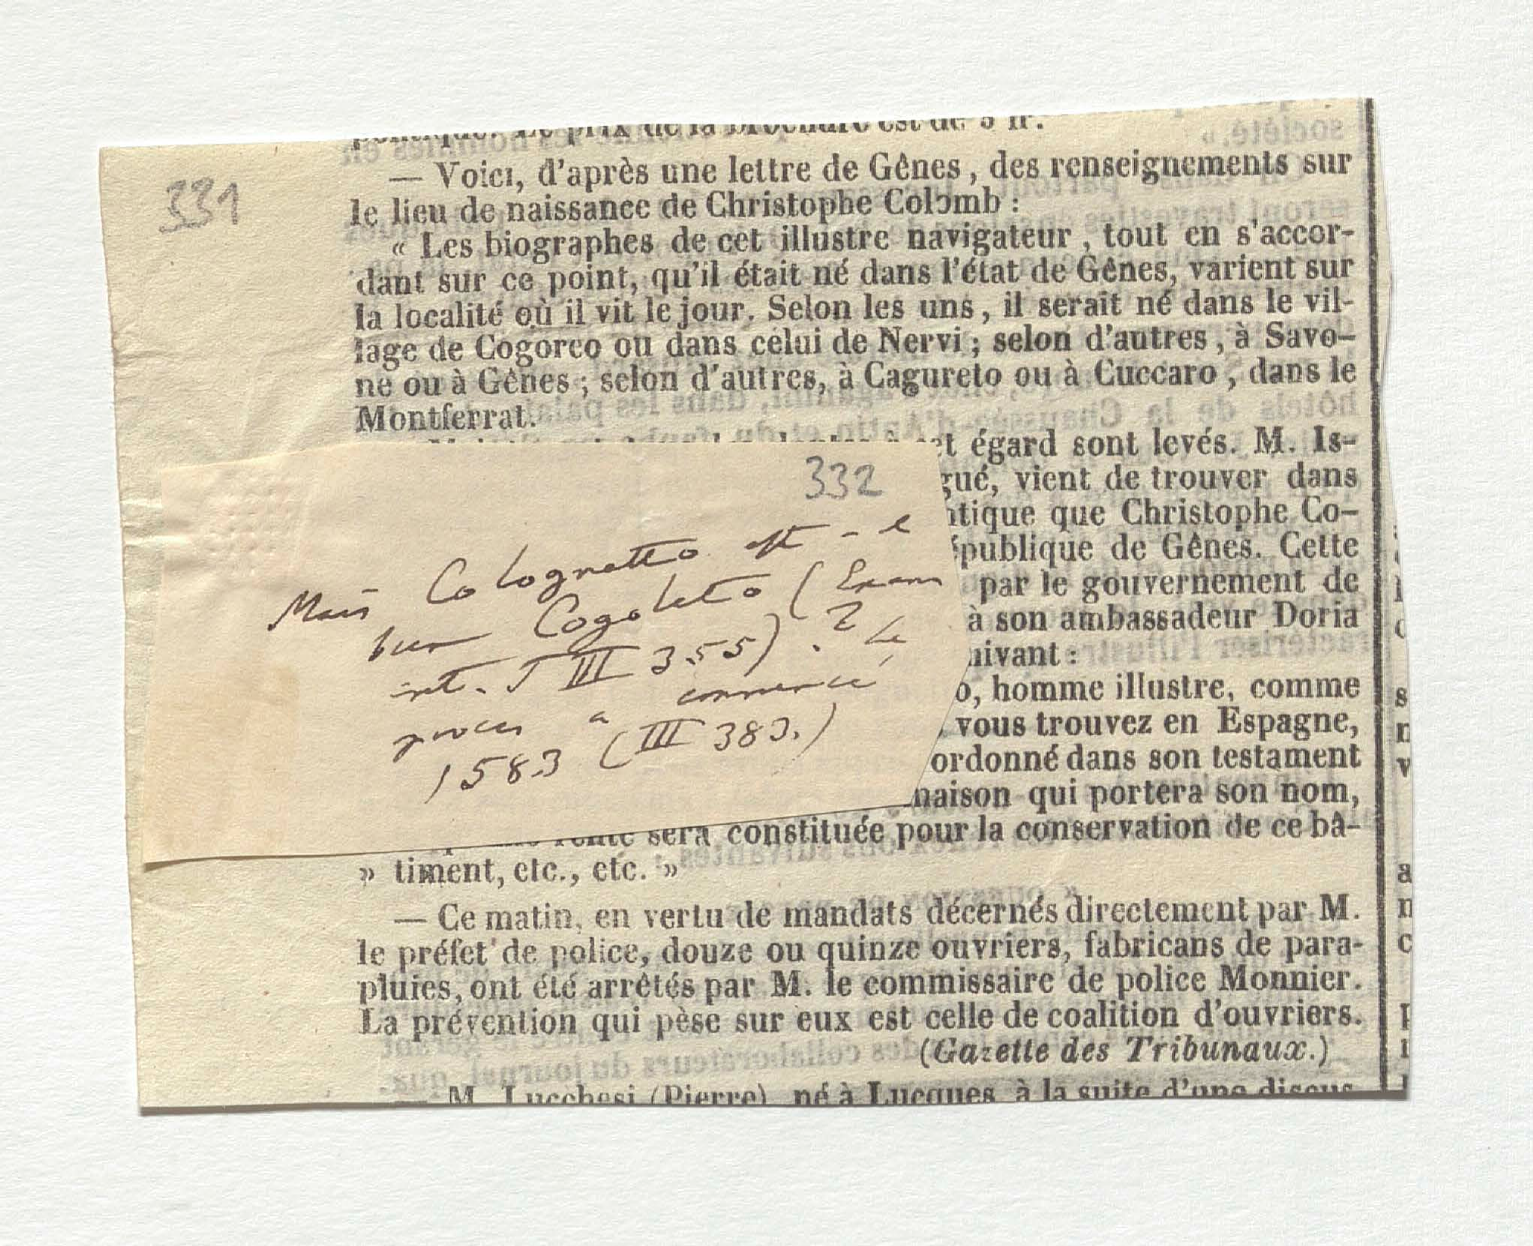 331
politique. Le prix de la brochure est de 5 fr.
— Voici, d'après une lettre de Gênes, des renseignements sur
le lieu de naissance de Christophe Colomb :
« Les biographes de cet illustre navigateur, tout en s'accor-
dant sur ce point, qu'il était né dans l'état de Gênes, varient sur
la localité où il vit le jour. Selon les uns, il serait né dans le vil-
lage de Cogoreo ou dans celui de Nervi ; selon d'autres, à Savo-
ne ou à Gênes ; selon d'autres, à Cagureto ou à Cuccaro, dans le
Montferrat.
égard sont levés. M. Is-
gué, vient de trouver dans
tique que Christophe Co-
épublique de Gênes. Cette
par le gouvernement de
à son ambassadeur Doria
uivant :
o, homme illustre, comme
vous trouvez en Espagne,
ordonné dans son testament
maison qui portera son nom,
rente sera constituée pour la conservation de ce bâ-
» timent, etc., etc. »
— Ce matin, en vertu de mandats décernés directement par M.
le préfet de police, douze ou quinze ouvriers, fabricans de para-
pluies, ont été arrêtés par M. le commissaire de police Monnier.
La prévention qui pèse sur eux est celle de coalition d'ouvriers.
(Gazette des Tribunaux.)
M. Lucchesi (Pierre), né à Lucques, à la suite d'une discus
332
Mais Colognetto est-e
bien Cogoleto (Exam
int. T III 355) ? Le
procès a commencé
1583 (III 383.)